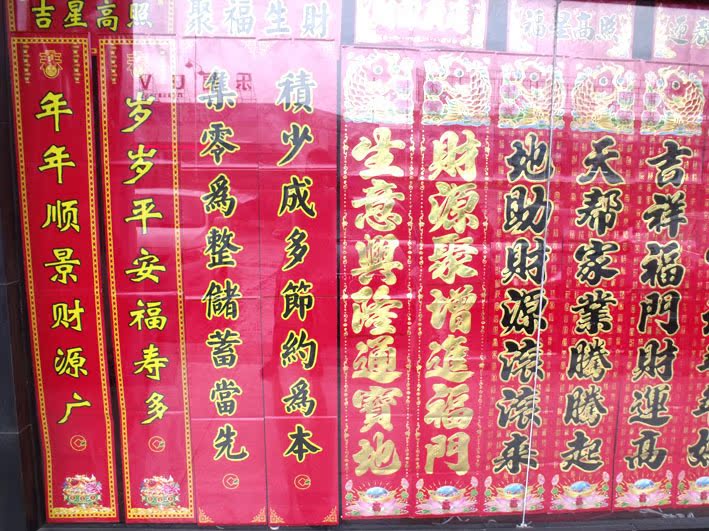 吉星高照
聚福生財
福星高照
年年顺景财源广
岁岁平安福寿多
集零爲整儲蓄當先
積少成多節約爲本
生意興隆通寶地
財源聚增進福門
地助財源滚滚来
天帮家業騰騰起
吉祥福門財運高